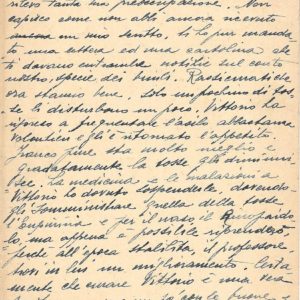 tanta tua preoccupazione. Non
capisco come non abbi ancora ricevuto
un mio scritto, ti ho pur manda
to una lettera ed una cartolina che
ti davano entrambe notizie sul conto
nostro, specie dei bimbi. Rassicurati che
ora stanno bene. Solo un pochino di tos-
se li disturbano un poco. Vittorio ha
ripreso a frequentare l'asilo abbastanza
volontieri e gli è ritornato l'appetito.
Franco pure sta molto meglio e
gradatamente la tosse gli diminui
sce. La medicina e le
Vittorio ho dovuto sospenderle, dovendo
gli somministrare quella della tosse
l'Eupinina e per il naso il
lo, ma appena è possibile riprenderò,
all'epoca stabilita, il professore
trovi in lui un miglioramento. Certa
mente che curare Vittorio è una vera